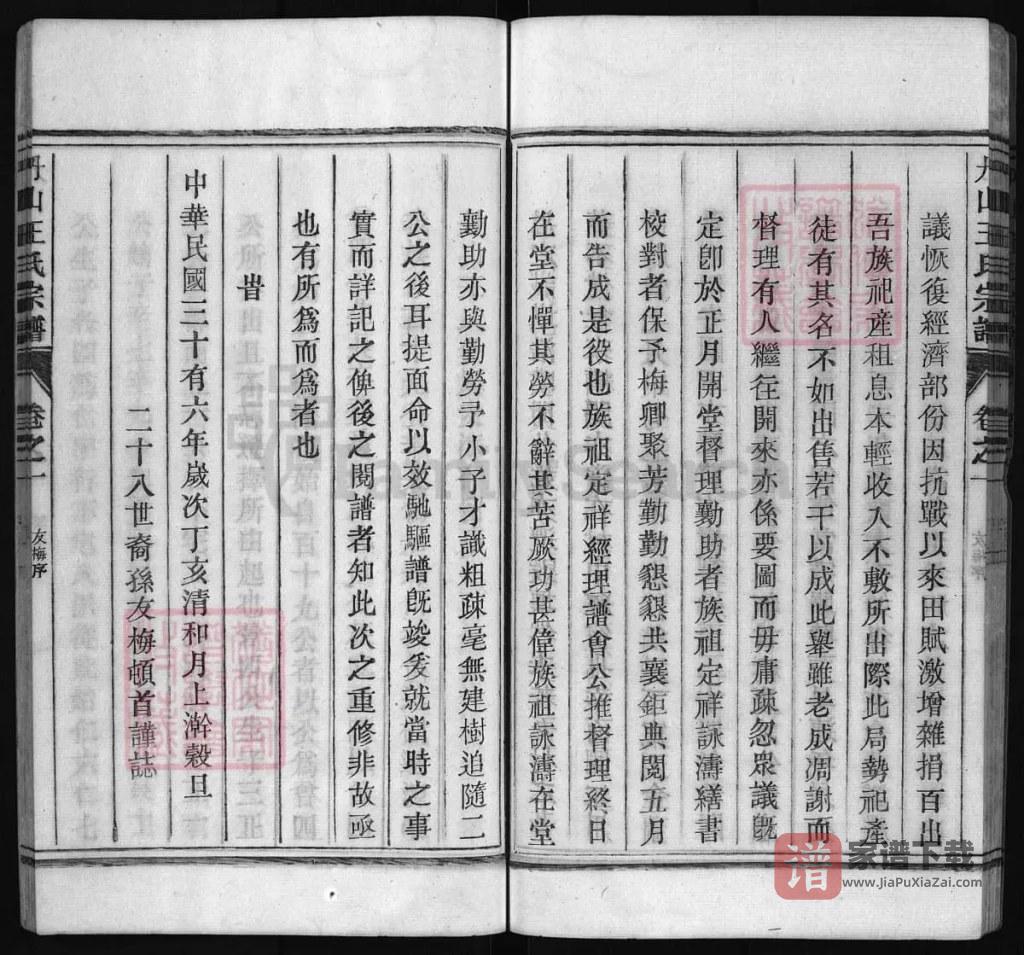 議恢復經濟部份因抗戰以來田賦激增雜捐百出
吾族祀產租息本輕收入不敷所出際此局勢祀產
徒有其名不如出售若干以成此舉雖老成凋謝而
督理有人繼往開來亦係要圖而毋庸疎忽眾議旣
定卽於正月開堂督理勷助者族祖定祥詠濤繕書
校對者保予梅卿聚芳勤勤懇懇共襄鉅典閱五月
而告成是役也族祖定祥經理譜會公推督理終日
在堂不憚其勞不辭其苦厥功甚偉族祖詠濤在堂
勷助亦與勤勞予小子才識粗疎毫無建樹追隨二
公之後耳提面命以效馳驅譜旣竣爰就當時之事
實而詳記之俾後之閱譜者知此次之重修非故亟
也有所爲而爲者也
旹
中華民國三十有六年歲次丁亥清和月上澣穀旦
二十八世裔孫友梅頓首謹誌
丹山王氏宗譜
卷之一
友梅序
谱
家谱下载
www.JiaPuXiaZai.com